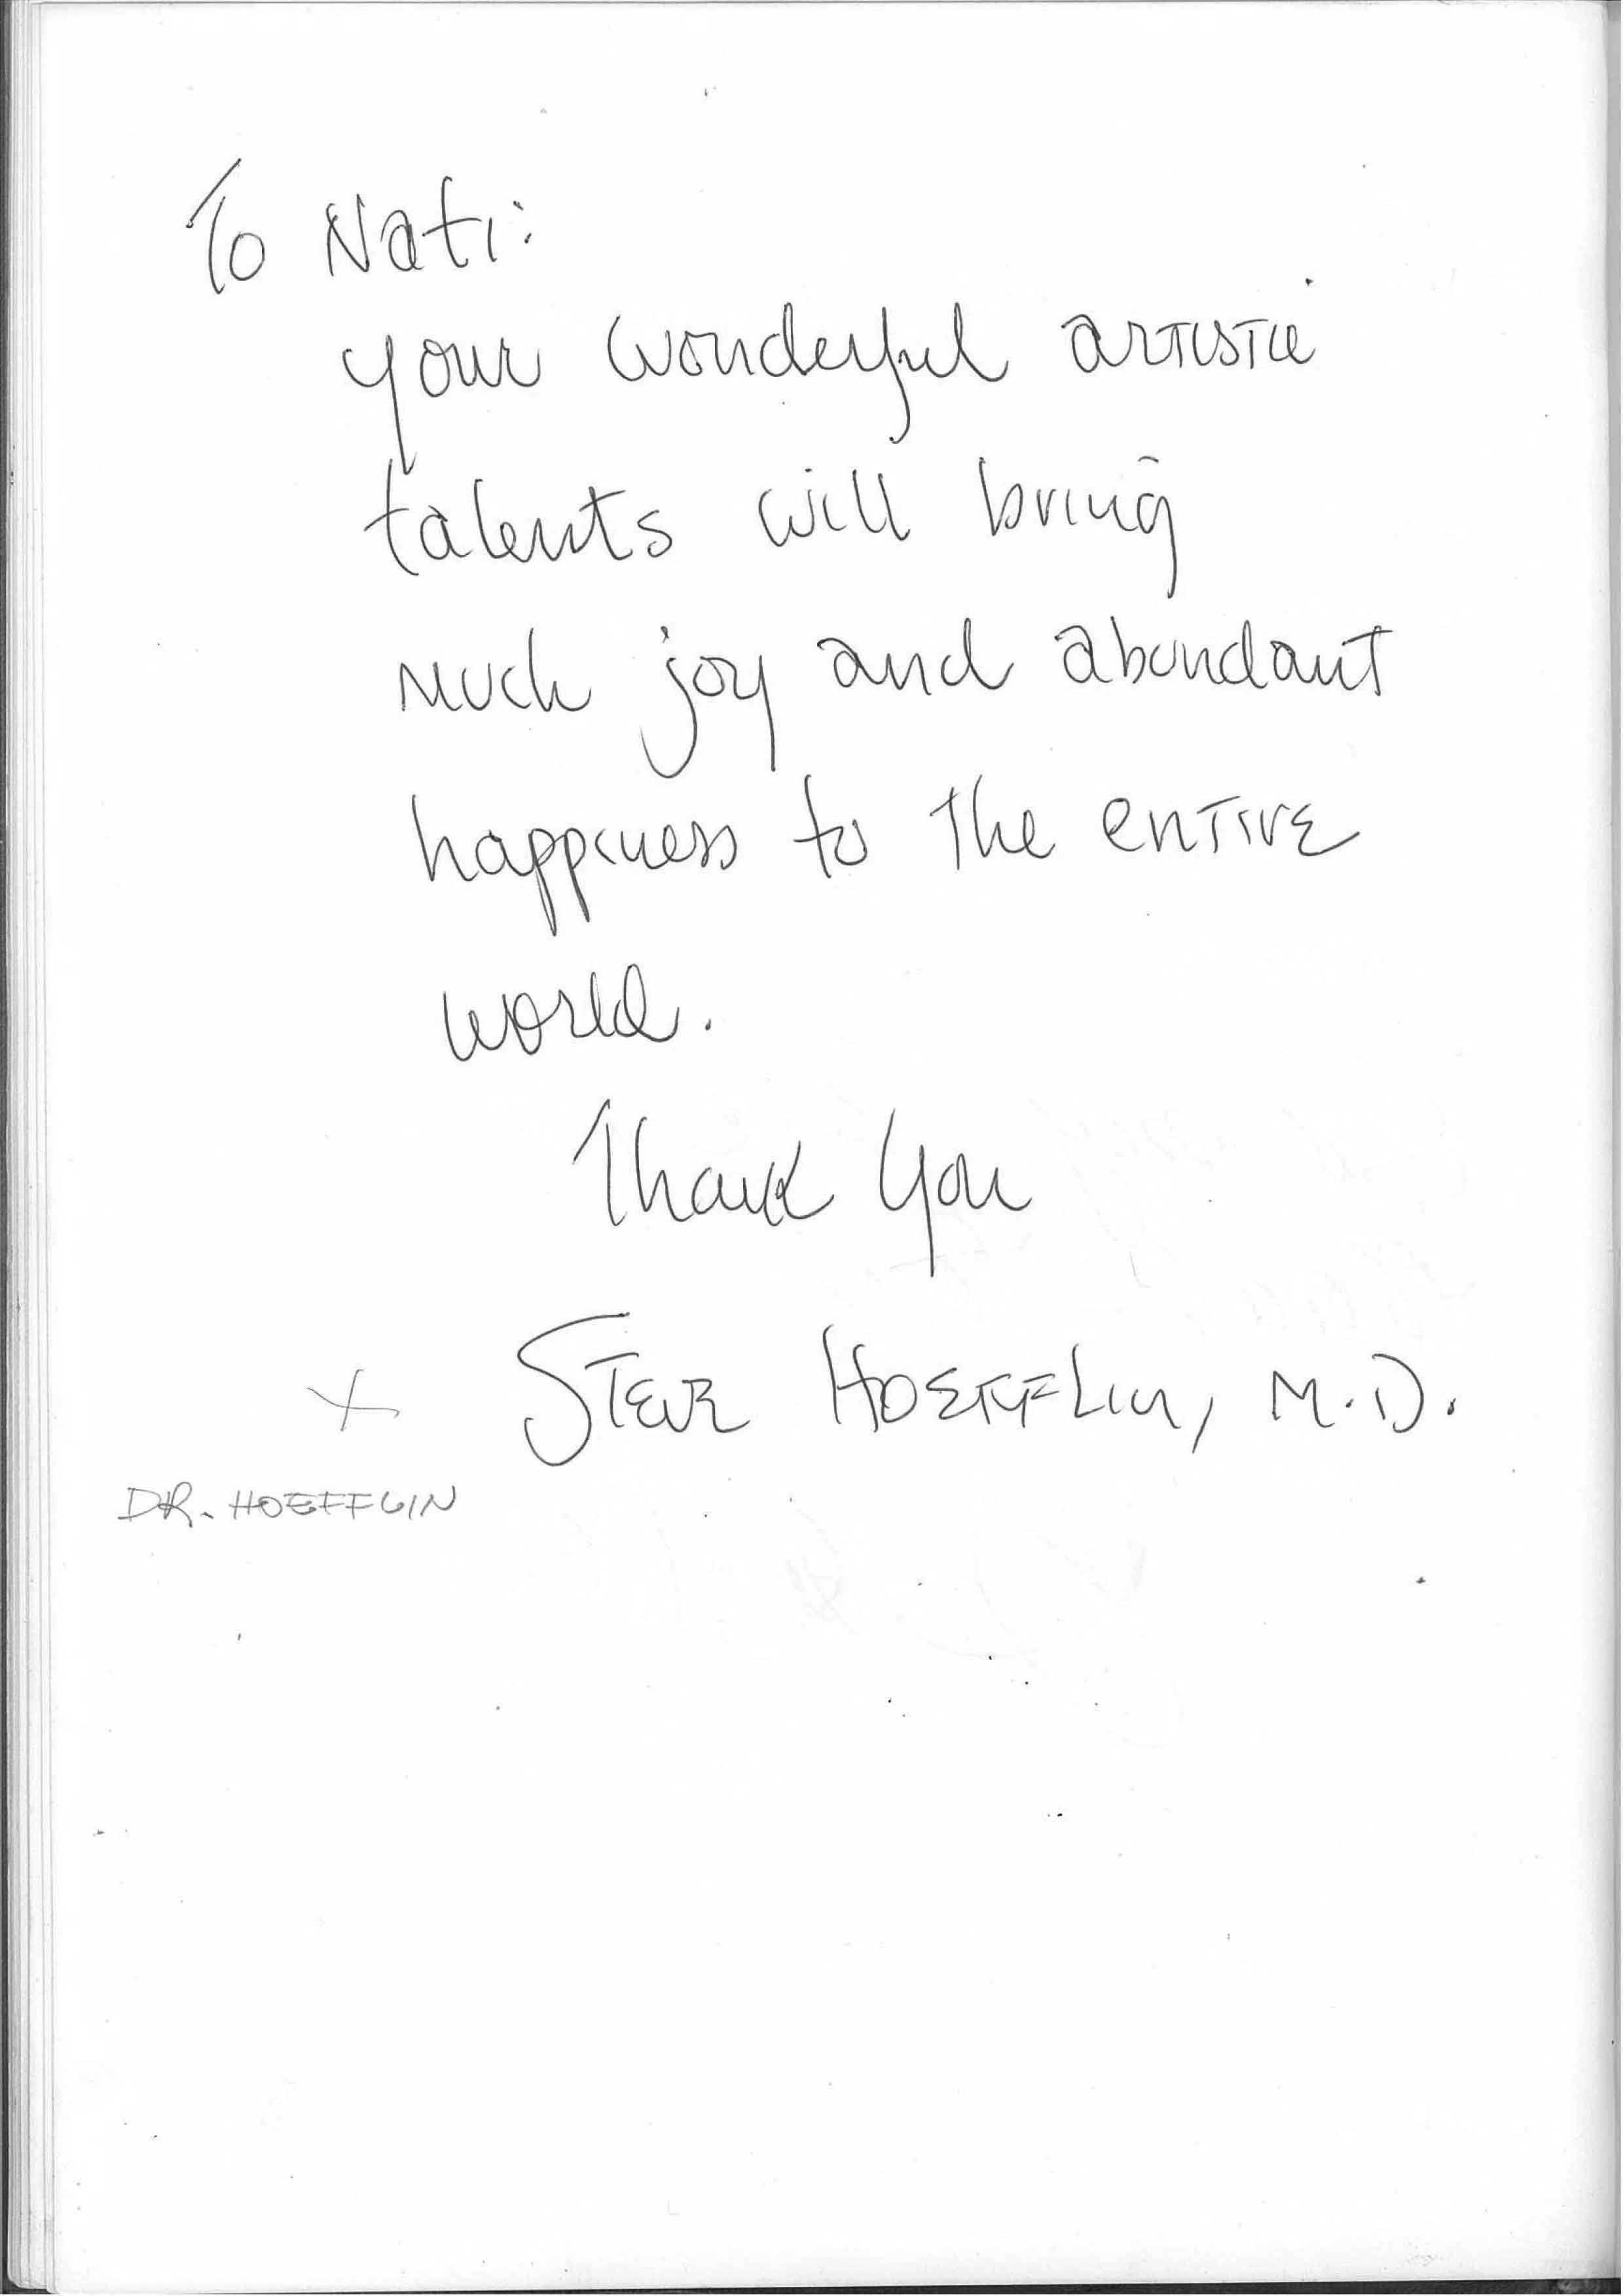 To Nati:
your wonderful artistic
talents will bring
much joy and abundant
happiness to the entire
world.
Thank You
x Steve Hoefflin, M.D.
DR. HOEFFLIN